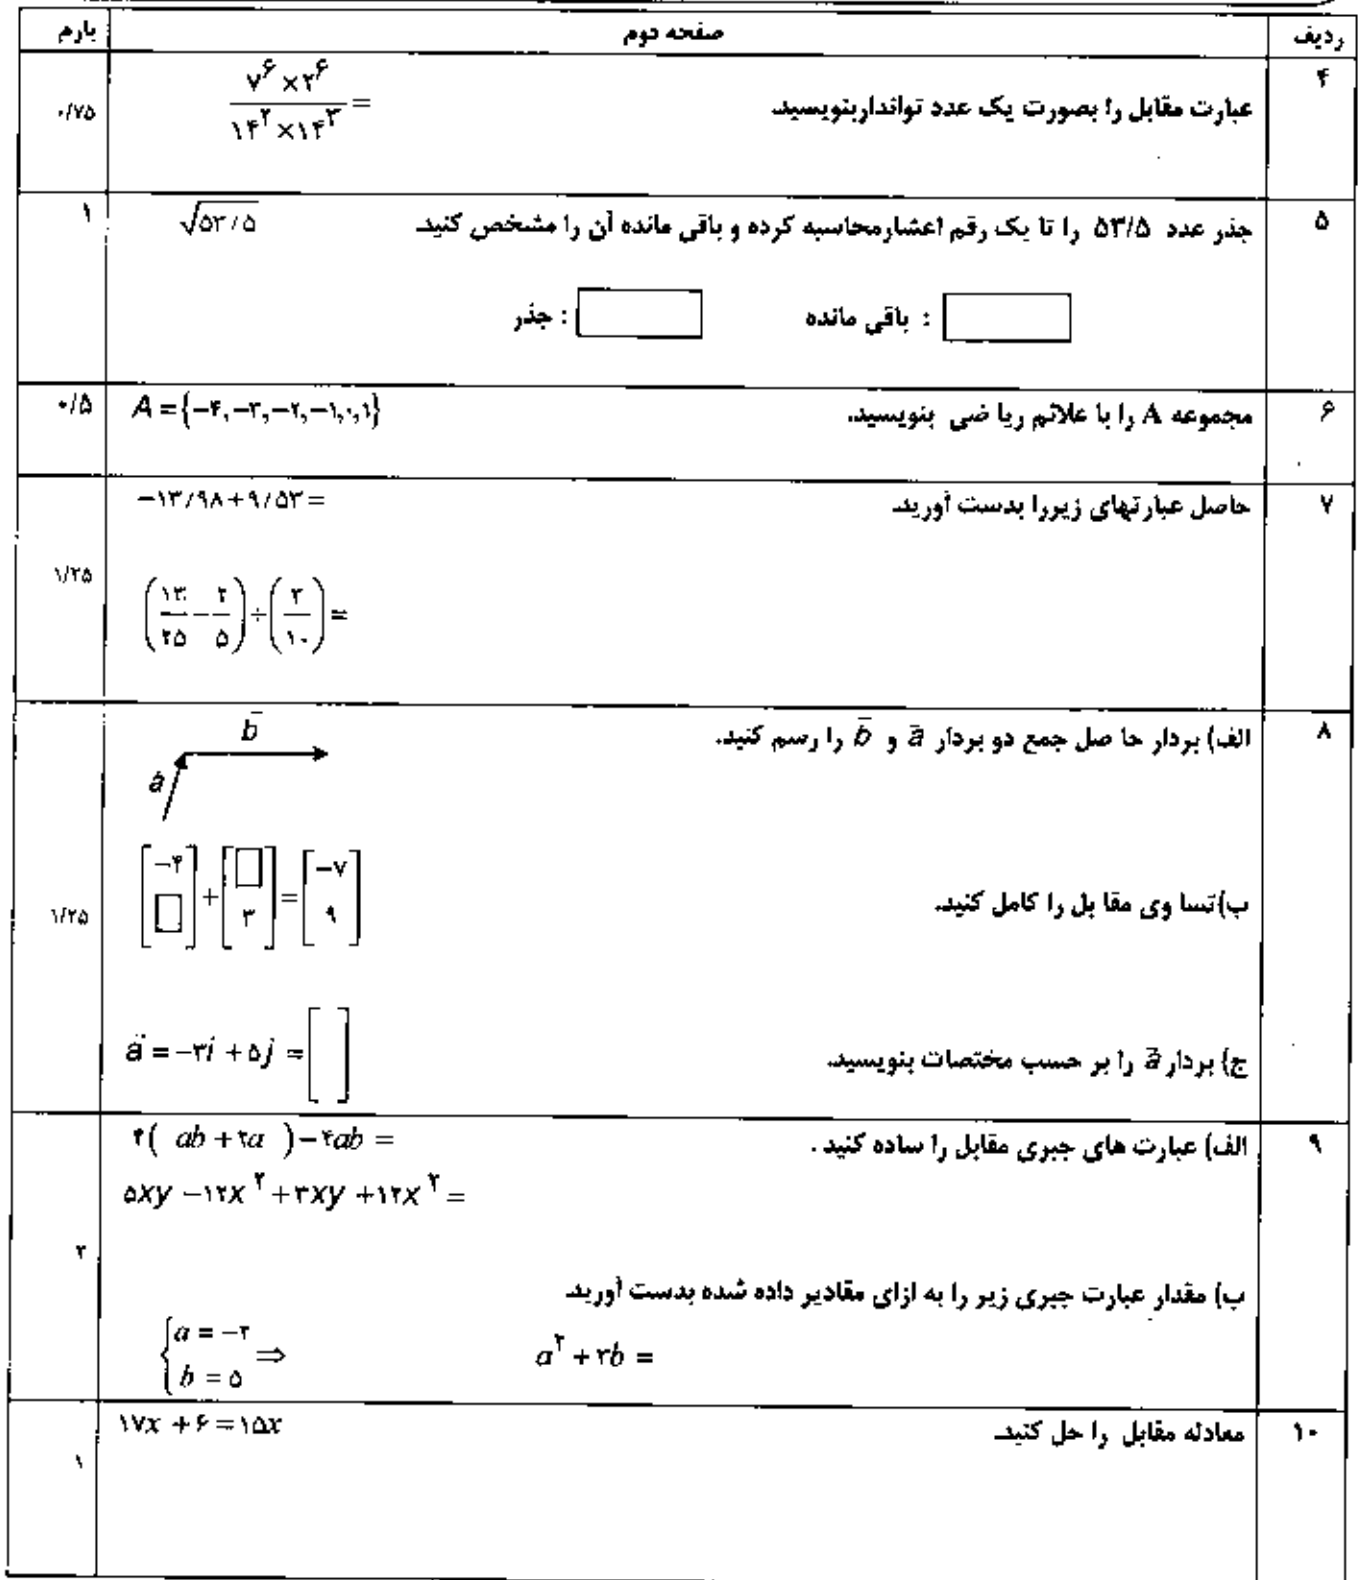 ردیف صفحه دوم بارم
۴ عبارت مقابل را بصورت یک عدد تواندار بنویسید. ۰/۷۵
۷^۶ × ۲^۶ / ۱۴^۲ × ۱۴^۳ =
۵ جذر عدد ۵۳/۵ را تا یک رقم اعشار محاسبه کرده و باقی مانده آن را مشخص کنید. √۵۳/۵ ۱
باقی مانده : جذر :
۶ مجموعه A را با علائم ریا ضی بنویسید. A = {-۴, -۳, -۲, -۱, ۰, ۱} ۰/۵
۷ حاصل عبارتهای زیررا بدست آورید. -۱۳/۹۸ + ۹/۵۳ =
(۱۳/۲۵ - ۲/۵) ÷ (۳/۱۰) = ۱/۲۵
۸ الف) بردار حا صل جمع دو بردار a و b را رسم کنید.
b
a
ب) تسا وی مقا بل را کامل کنید. [-۴ □] + [□ ۳] = [-۷ ۹] ۱/۲۵
ج) بردار a را بر حسب مختصات بنویسید. a = -۳i + ۵j = [ ]
۹ الف) عبارت های جبری مقابل را ساده کنید . ۴( ab + ۲a ) - ۴ab =
۵xy - ۱۲x^۲ + ۳xy + ۱۲x^۲ =
۲
ب) مقدار عبارت جبری زیر را به ازای مقادیر داده شده بدست آورید.
{a = -۲ b = ۵ ⇒ a^۲ + ۳b =
۱۰ معادله مقابل را حل کنید. ۱۷x + ۶ = ۱۵x
۱